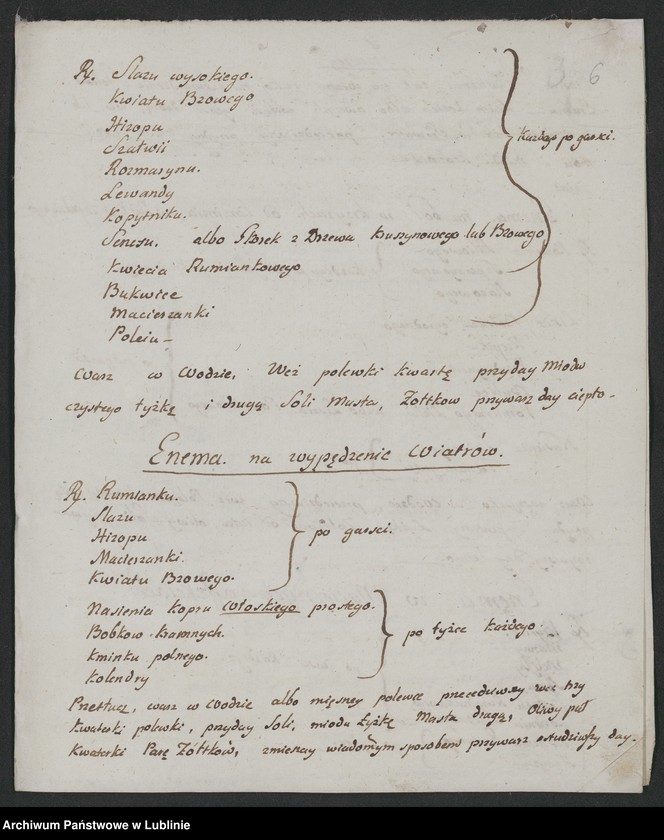 6
Rx. Slazu wysokiego.
Kwiatu Bzowego
Hizopu
Szałwii
Rozmarynu.
Lewandy
Kopytniku.
Senesu, albo Skorek z Drzewa Kruszynowego lub Bzowego
Kwiecia Rumiankowego
Bukwice
Macierzanki
Poleiu –
Każdego po garsci.
Warz w Wodzie, Weź polewki kwartę przyday Miodu
czystego łyżkę i drugą Soli Masta, Zołtkow przywarz day ciepło –
Enema na wypędzenie Wiatrów.
Rx. Rumianku.
Slazu
Hizopu
Macierzanki.
Kwiatu Bzowego.
po garsci.
Nasienia kopru Włoskiego prostego.
Bobkow
Kminku polnego.
Kolendry
po łyżce każdego
Przetłucz, warz w Wodzie albo mięsney polewce przecedziwszy weź trzy
kwaterki polewki, przyday Soli, miodu łyżkę Masta drugą, Oliwy puł
kwaterki Parę Zółtków, zmieszay wiadomym sposobem przywarz ostudziwszy day.
Archiwum Państwowe w Lublinie